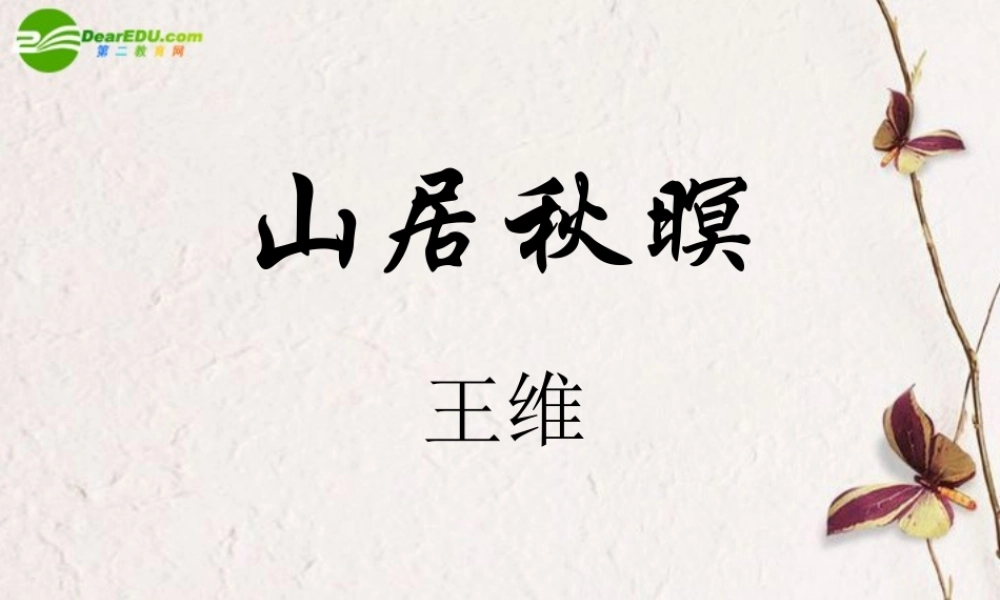 DearEDU.com
第二教育网
山居秋暝
王维